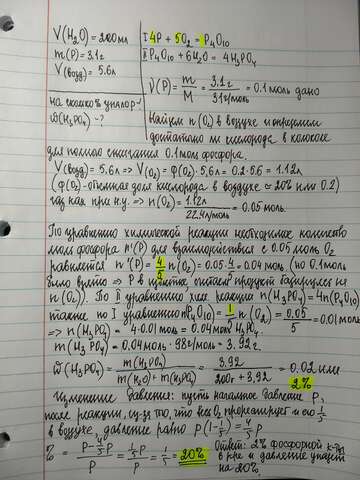 V(H₂O) = 200 мл
m(P) = 3.1 г
V(возд) = 5.6 л
на сколько % упл
ω̄(H₃PO₄) - ?
I 4P + 5O₂ = P₄O₁₀
II P₄O₁₀ + 6H₂O = 4H₃PO₄
ν(P) = m/M = 3.1г/31г/моль = 0.1 моль дано
Найдем n(O₂) в воздухе и определим
достаточно ли кислорода в колоколе
для полного сжигания 0.1 моль фосфора.
V(возд) = 5.6л => V(O₂) = φ(O₂)·5.6л = 0.2·5.6 = 1.12л
(φ(O₂) - объемная доля кислорода в воздухе ≈ 20% или 0.2)
газ как при н.у. => n(O₂) = 1.12л/22.4л/моль = 0.05 моль.
По уравнению химической реакции необходимое количество
моль фосфора n'(P) для взаимодействия с 0.05 моль O₂
равняется n'(P) = 4/5 n(O₂) = 0.05·4/5 = 0.04 моль (но 0.1 моль
было взято => P в избытке, считаем продукт базируясь на
n(O₂)). По II уравнению хим реакции n(H₃PO₄) = 4n(P₄O₁₀)
также по I уравнению nP₄O₁₀ = 1/5 n(O₂) = 0.05/5 = 0.01 моль
=> n(H₃PO₄) = 4·0.01 моль = 0.04 моль H₃PO₄.
m(H₃PO₄) = 0.04 моль·98г/моль = 3.92 г.
ω̄(H₃PO₄) = m(H₃PO₄)/m(H₂O)+m(H₃PO₄) = 3.92/200г+3.92 = 0.02 или 2%
Изменение давления: пусть начальное давление P,
после реакции, из-за того, что весь O₂ прореагирует и его 1/5
в воздухе, давление равно P(1-1/5) = 4/5P
= P-4/5P/P = 1/5P/P = 1/5 = 20%
Ответ: 2% фосфорной к-ты
в р-ре и давление упадет
на 20%.